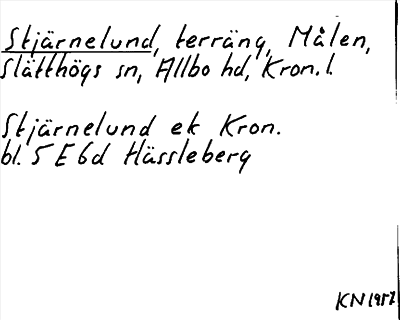 Stjärnelund, terräng, Målen,
Slätthögs sn, Allbo hd, Kron. l.
Stjärnelund ek Kron.
bl. 5 E 6d Hässleberg
KN 1957